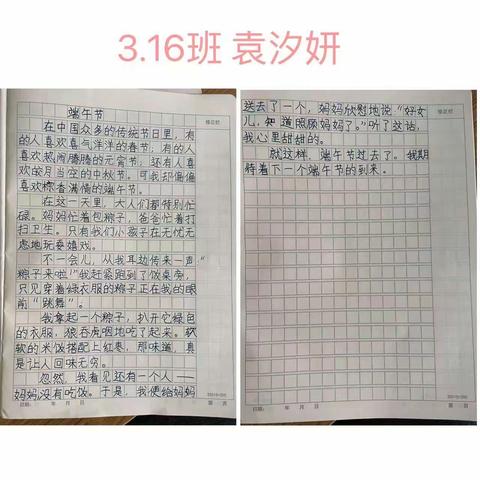 3.16班 袁汐妍
端午节
在中国众多的传统节日里，有
的人喜欢喜气洋洋的春节，有的人
喜欢热闹腾腾的元宵节，还有人喜
欢皎月当空的中秋节。可我却偏偏
喜欢粽香满情的端午节。
在这一天里，大人们都特别忙
碌。妈妈忙着包粽子，爸爸忙着打
扫卫生。只有我们小孩子在无忧无
虑地玩耍嬉戏。
不一会儿，从我耳边传来一声“
粽子来啦！”我赶紧跑到了饭桌旁，
只见穿着绿衣服的粽子正在我的眼
前“跳舞”。
我拿起一个粽子，扒开它绿色
的衣服，狼吞虎咽地吃了起来。软
软的米饭搭配上红枣，那味道，真
是让人回味无穷。
忽然，我看见还有一个人——
妈妈没有吃饭。于是，我便给妈妈
日期： 年 月 日 第 页
送去了一个，妈妈欣慰地说“好女
儿，知道照顾妈妈了。”听了这话，
我心里甜甜的。
就这样，端午节过去了。我期
待着下一个端午节的到来。
日期： 年 月 日 第 页